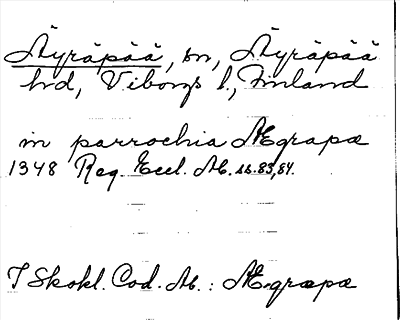 Äyräpää, sn, Äyräpää
hrd, Viborgs l., Finland
in parrochia Ægrapæ
1348 Reg. Eccl. Ab. ss. 83, 84.
I Skokl. Cod. Ab.: Ægræpæ